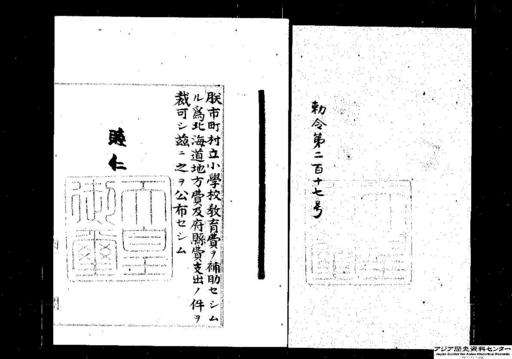 勅令第二百十七号
朕市町村立小學校教育費ヲ補助セシム
ル爲北海道地方費及府縣費支出ノ件ヲ
裁可シ茲ニ之ヲ公布セシム
睦仁
天皇
御璽
アジア歴史資料センター
Japan Center for Asian Historical Records